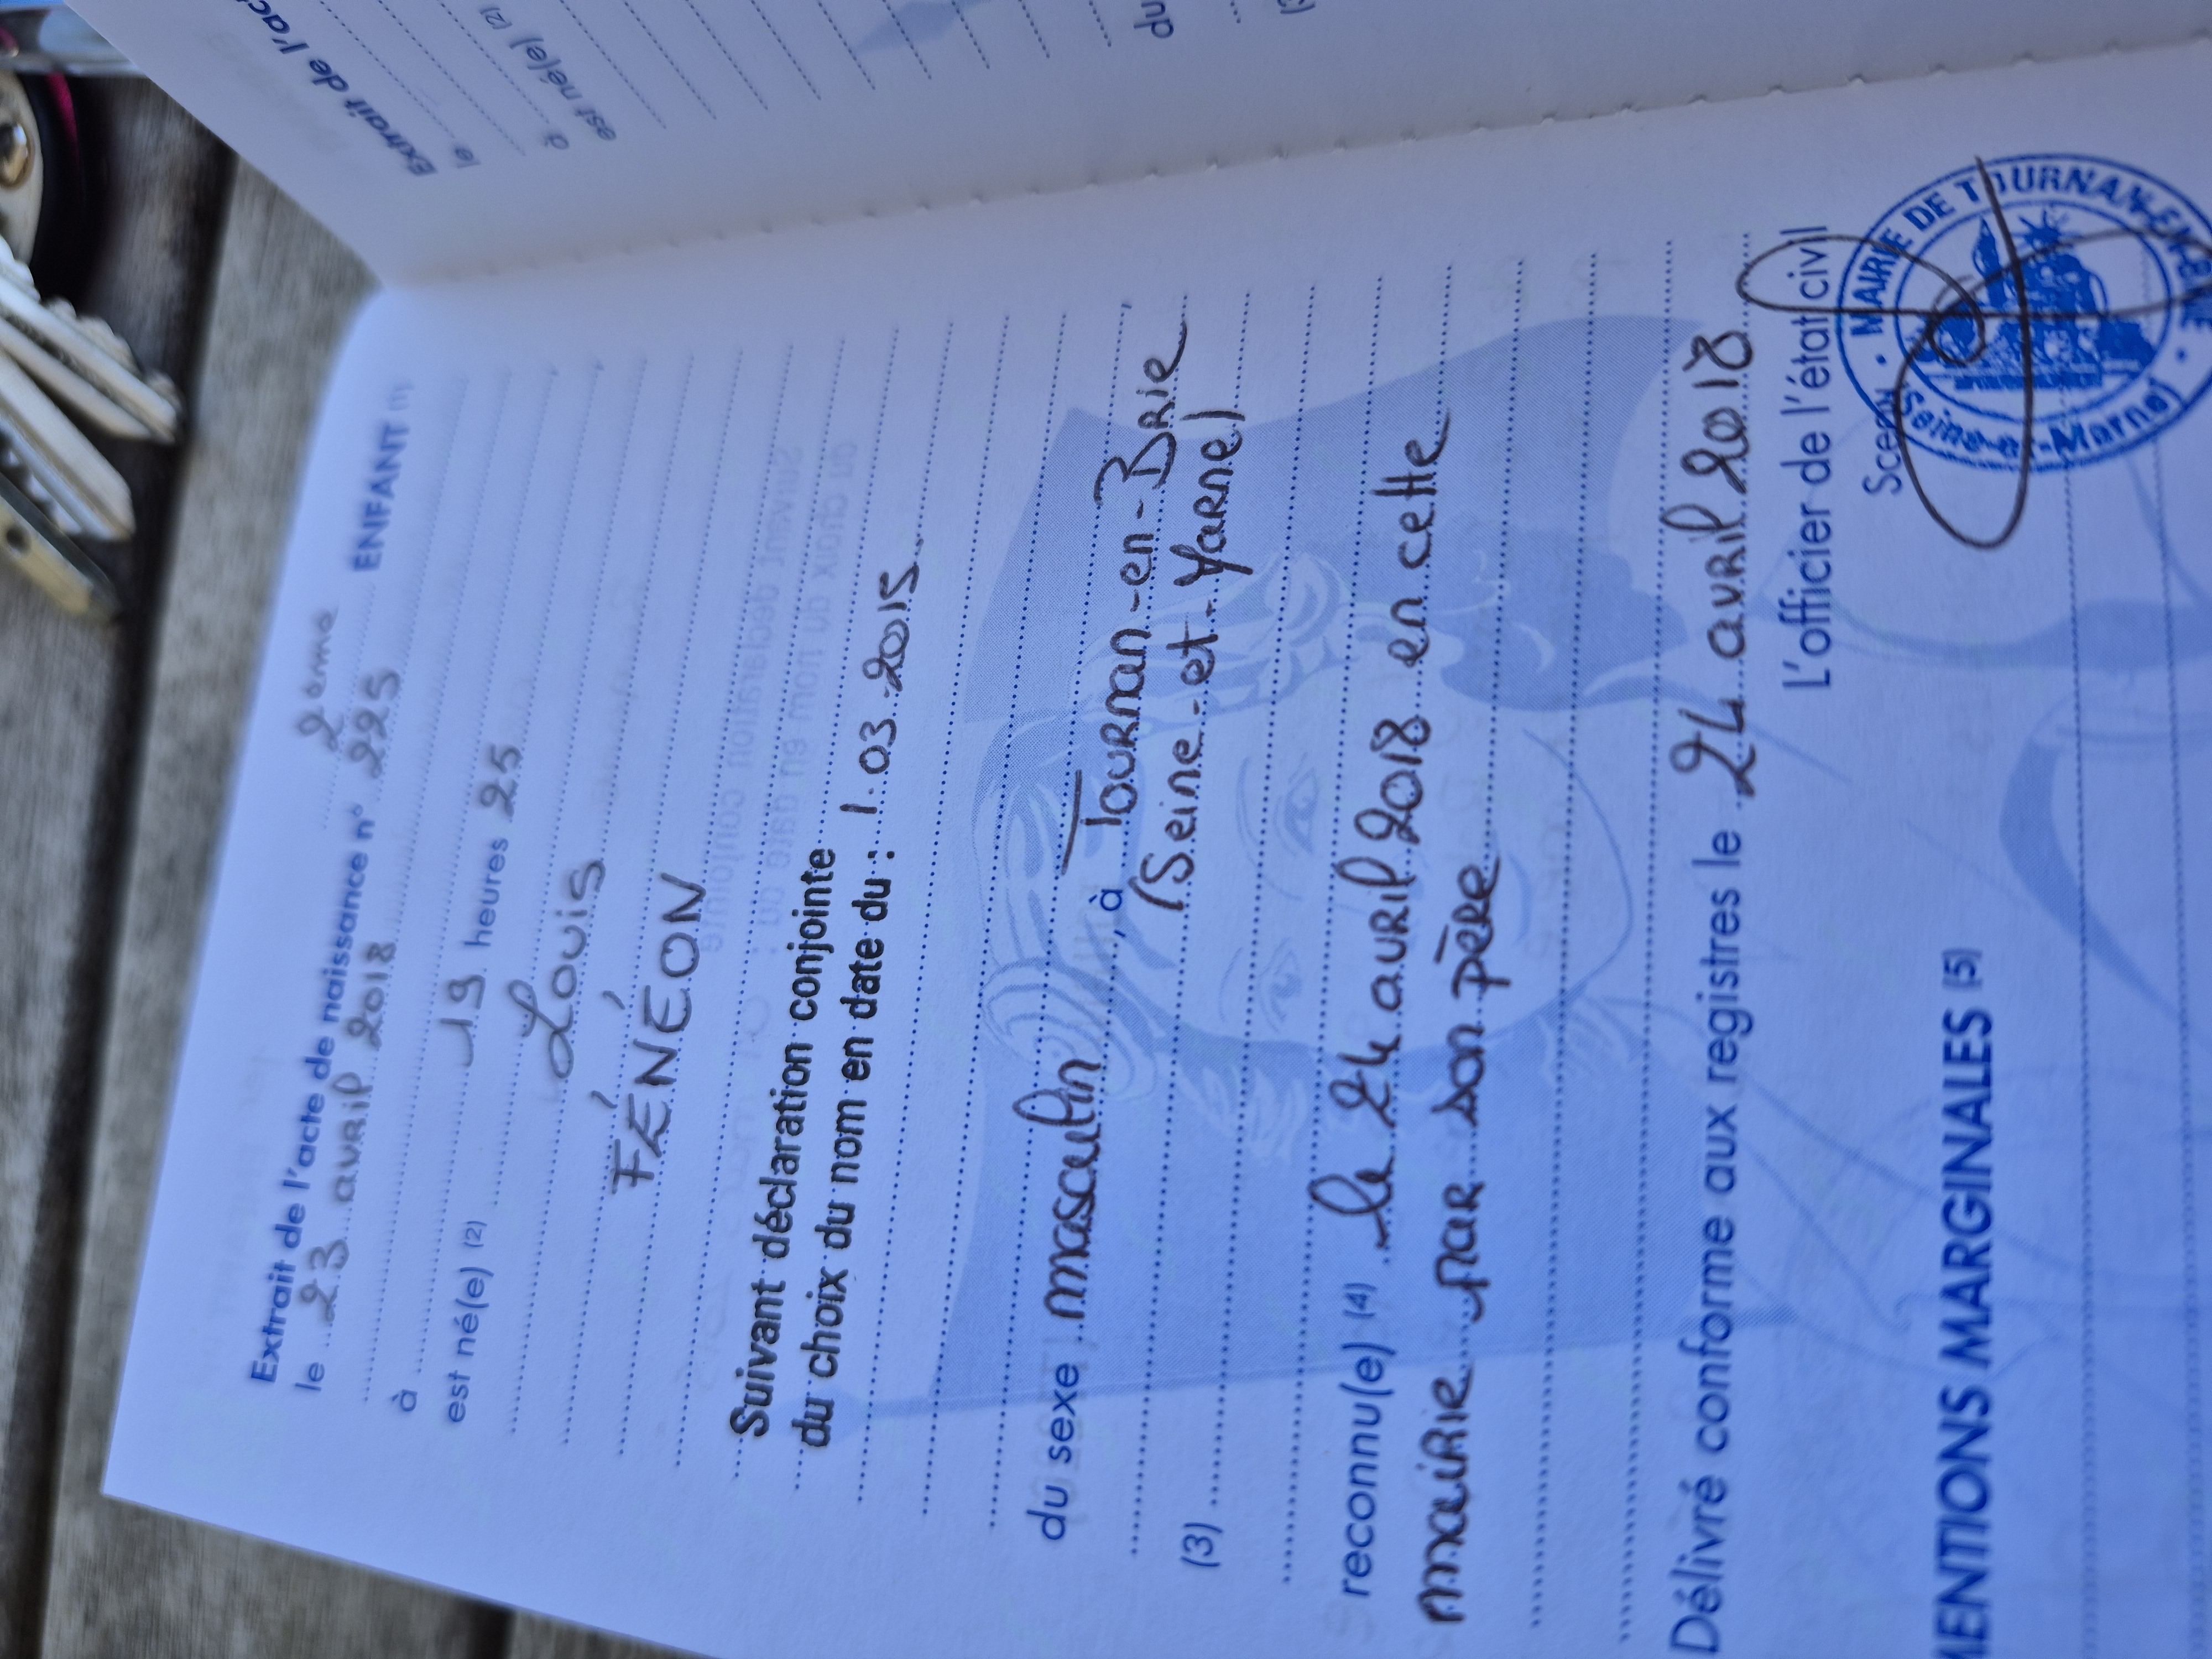 2ème ENFANT (1)
Extrait de l'acte de naissance n° 225
le 23 avril 2018
à 19 heures 25
est né(e) (2)
Louis
FÉNÉON
Suivant déclaration conjointe
du choix du nom en date du : 1.03.2015.
du sexe masculin, à Tournan-en-Brie
(3) (Seine-et-Marne)
reconnu(e) (4) le 24 avril 2018 en cette
mairie par son père
Délivré conforme aux registres le 24 avril 2018
L'officier de l'état civil
Sceau
MAIRIE DE TOURNAN-EN-BRIE
(Seine-et-Marne)
MENTIONS MARGINALES (5)
Extrait de l'ac
le
à
est né(e) (2)
du